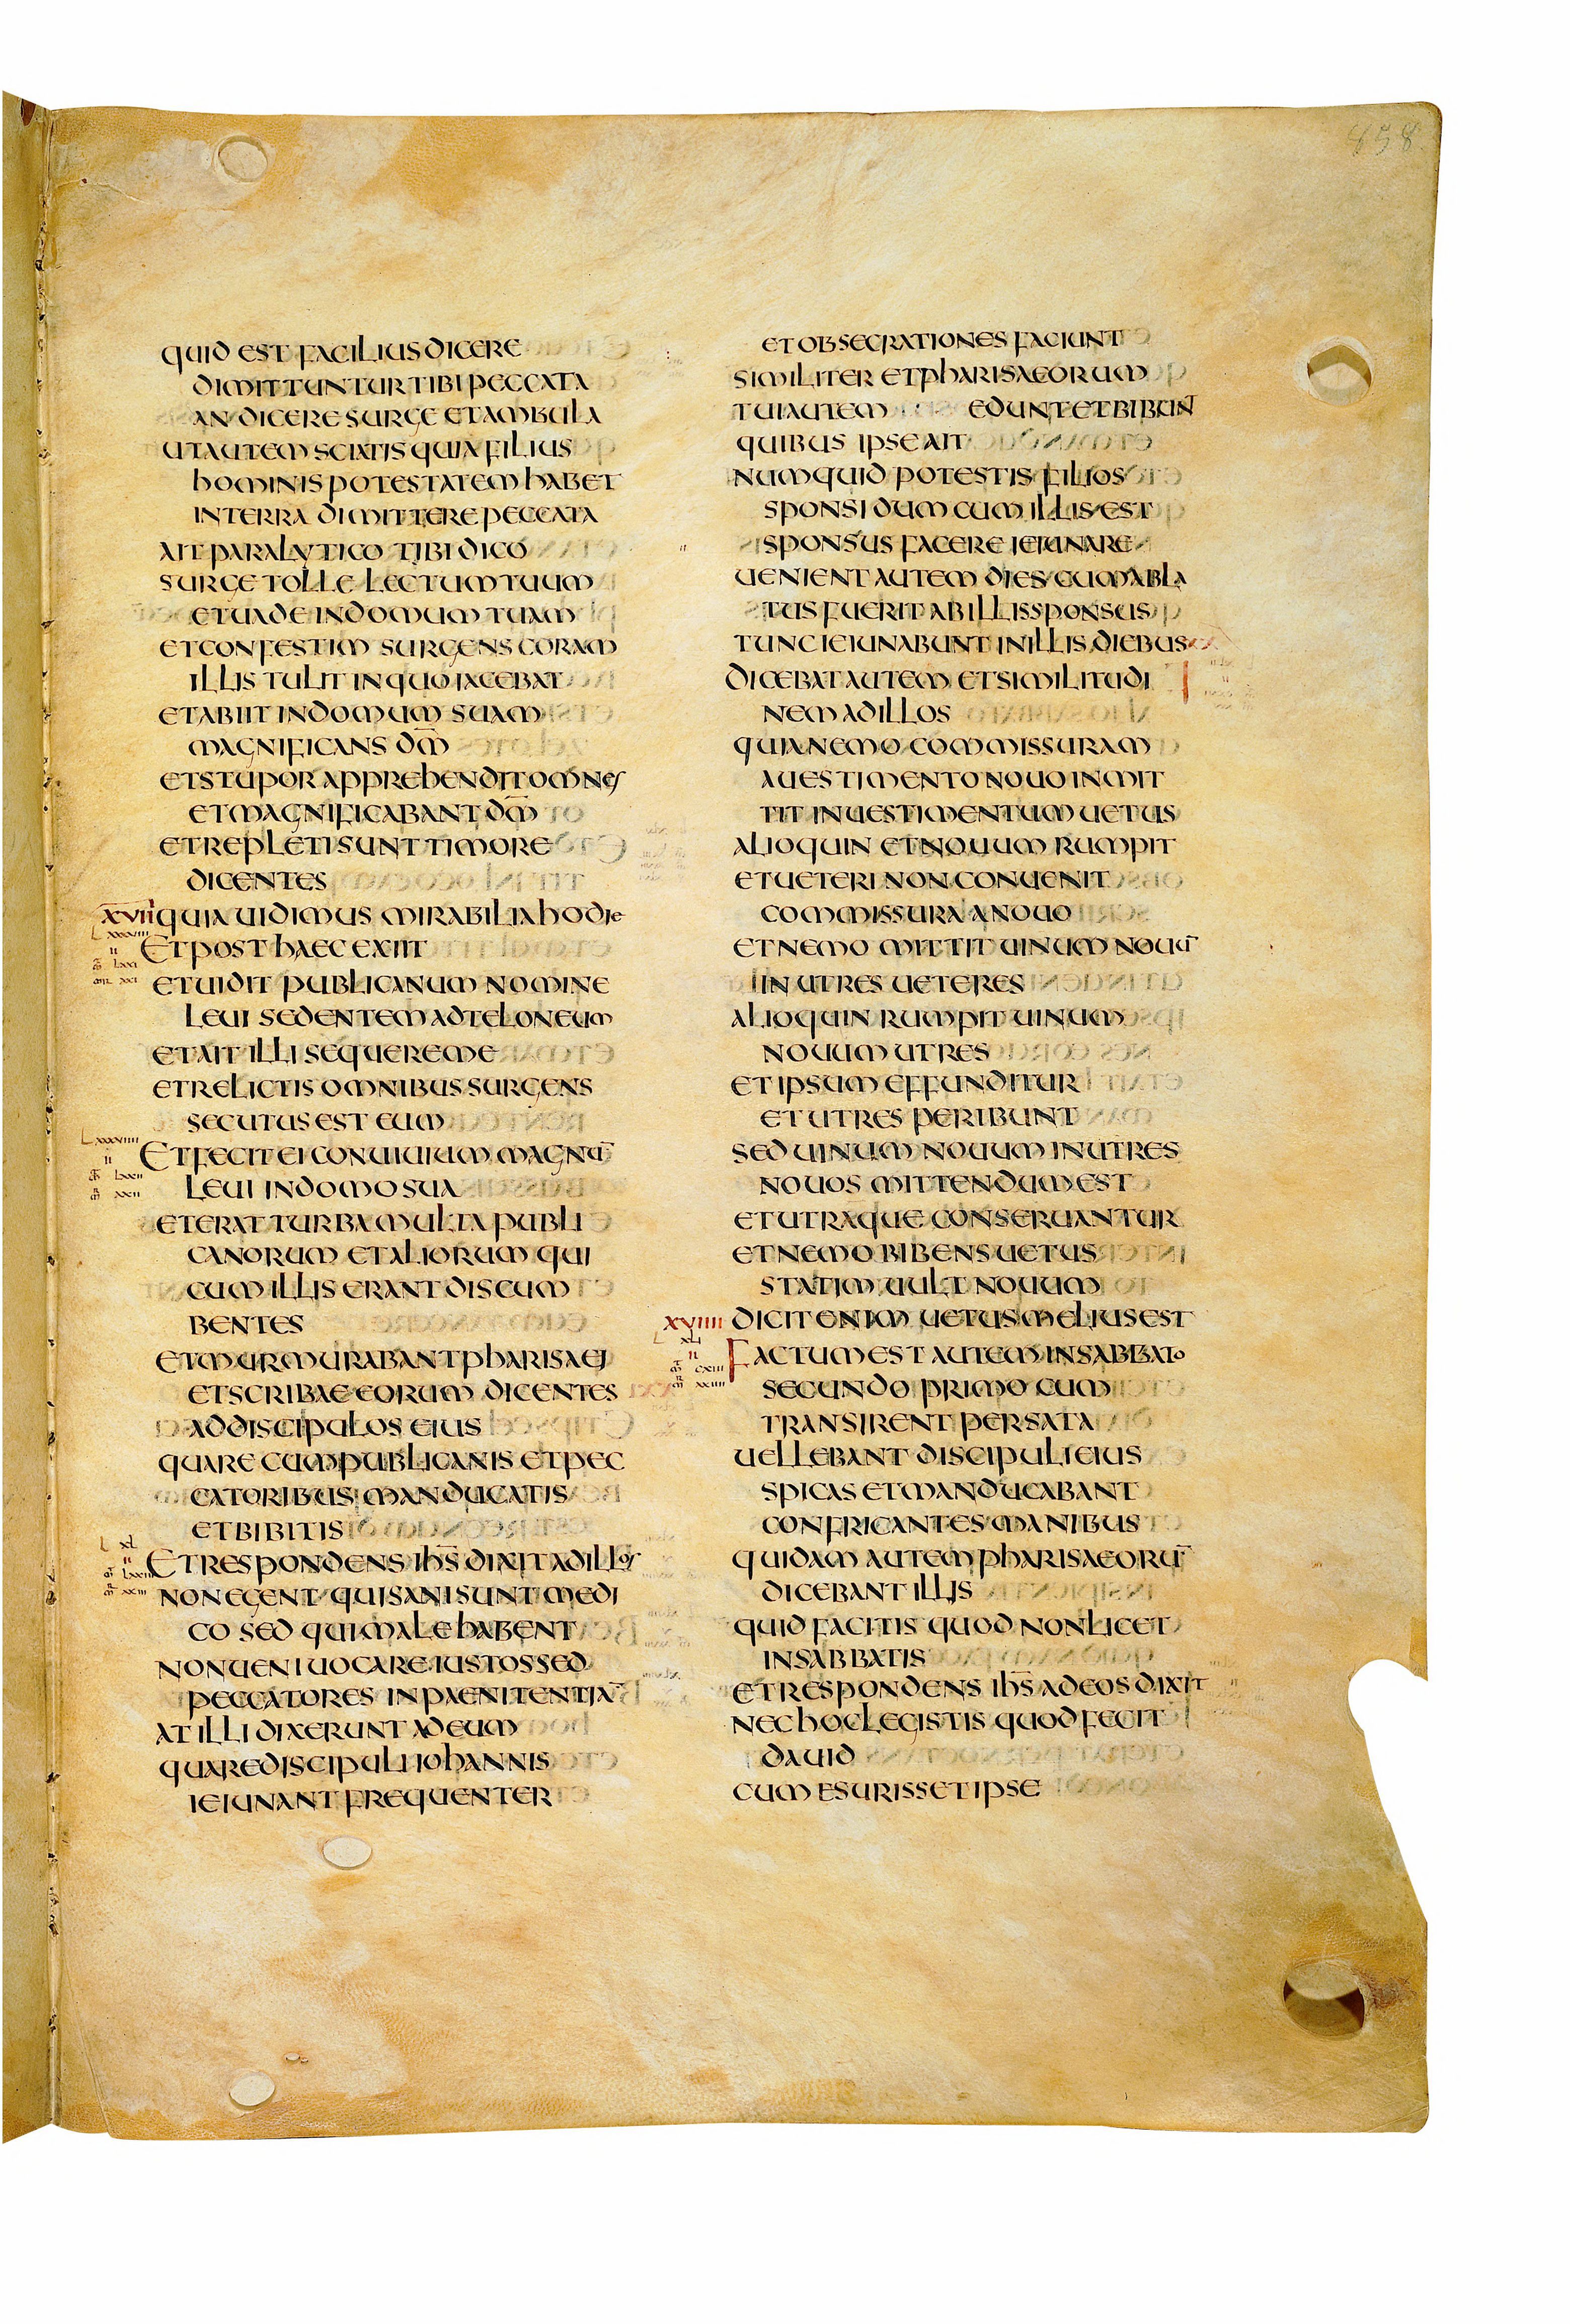 858
QUID EST FACILIUS DICERE
DIMITTUNTUR TIBI PECCATA
AN DICERE SURGE ET AMBULA
UT AUTEM SCIATIS QUIA FILIUS
HOMINIS POTESTATEM HABET
IN TERRA DIMITTERE PECCATA
AIT PARALYTICO TIBI DICO
SURGE TOLLE LECTUM TUUM
ET UADE IN DOMUM TUAM
ET CONFESTIM SURGENS CORAM
ILLIS TULIT IN QUO IACEBAT
ET ABIIT IN DOMUM SUAM
MAGNIFICANS DM̅
ET STUPOR APPREHENDIT OMNES
ET MAGNIFICABANT DM̅
ET REPLETI SUNT TIMORE
DICENTES
XVII QUIA UIDIMUS MIRABILIA HODIE
LXXXVIII ET POST HAEC EXIIT
II
LXXI
XXI
ET UIDIT PUBLICANUM NOMINE
LEUI SEDENTEM AD TELONEUM
ET AIT ILLI SEQUERE ME
ET RELICTIS OMNIBUS SURGENS
SECUTUS EST EUM
LXXXVIIII
II
ET FECIT EI CONUIUIUM MAGNŪ
LXXII
XXII
LEUI IN DOMO SUA
ET ERAT TURBA MULTA PUBLI
CANORUM ET ALIORUM QUI
CUM ILLIS ERANT DISCUM
BENTES
ET MURMURABANT PHARISAEI
ET SCRIBAE EORUM DICENTES
AD DISCIPULOS EIUS
QUARE CUM PUBLICANIS ET PEC
CATORIBUS MANDUCATIS
ET BIBITIS
XL
II
ET RESPONDENS IHS̅ DIXIT AD ILLOS
XXIII
NON EGENT QUI SANI SUNT MEDI
CO SED QUI MALE HABENT
NON UENI UOCARE IUSTOS SED
PECCATORES IN PAENITENTIĀ
AT ILLI DIXERUNT AD EUM
QUARE DISCIPULI IOHANNIS
IEIUNANT FREQUENTER
ET OBSECRATIONES FACIUNT
SIMILITER ET PHARISAEORUM
TUI AUTEM EDUNT ET BIBUNT
QUIBUS IPSE AIT
NUMQUID POTESTIS FILIOS
SPONSI DUM CUM ILLIS EST
SPONSUS FACERE IEIUNARE
UENIENT AUTEM DIES CUM ABLA
TUS FUERIT AB ILLIS SPONSUS
TUNC IEIUNABUNT IN ILLIS DIEBUS
DICEBAT AUTEM ET SIMILITUDI
NEM AD ILLOS
QUIA NEMO COMMISSURAM
A UESTIMENTO NOUO INMIT
TIT IN UESTIMENTUM UETUS
ALIOQUIN ET NOUUM RUMPIT
ET UETERI NON CONUENIT
COMMISSURA A NOUO
ET NEMO MITTIT UINUM NOUŪ
IN UTRES UETERES
ALIOQUIN RUMPIT UINUM
NOUUM UTRES
ET IPSUM EFFUNDITUR
ET UTRES PERIBUNT
SED UINUM NOUUM IN UTRES
NOUOS MITTENDUM EST
ET UTRAQUE CONSERUANTUR
ET NEMO BIBENS UETUS
STATIM UULT NOUUM
XVIIII DICIT ENIM UETUS MELIUS EST
XLI
II
FACTUM EST AUTEM IN SABBATO
CXIII
XXIIII
SECUNDO PRIMO CUM
TRANSIRENT PER SATA
UELLEBANT DISCIPULI EIUS
SPICAS ET MANDUCABANT
CONFRICANTES MANIBUS
QUIDAM AUTEM PHARISAEORŪ
DICEBANT ILLIS
QUID FACITIS QUOD NON LICET
IN SABBATIS
ET RESPONDENS IHS̅ AD EOS DIXIT
NEC HOC LEGISTIS QUOD FECIT
DAUID
CUM ESURISSET IPSE